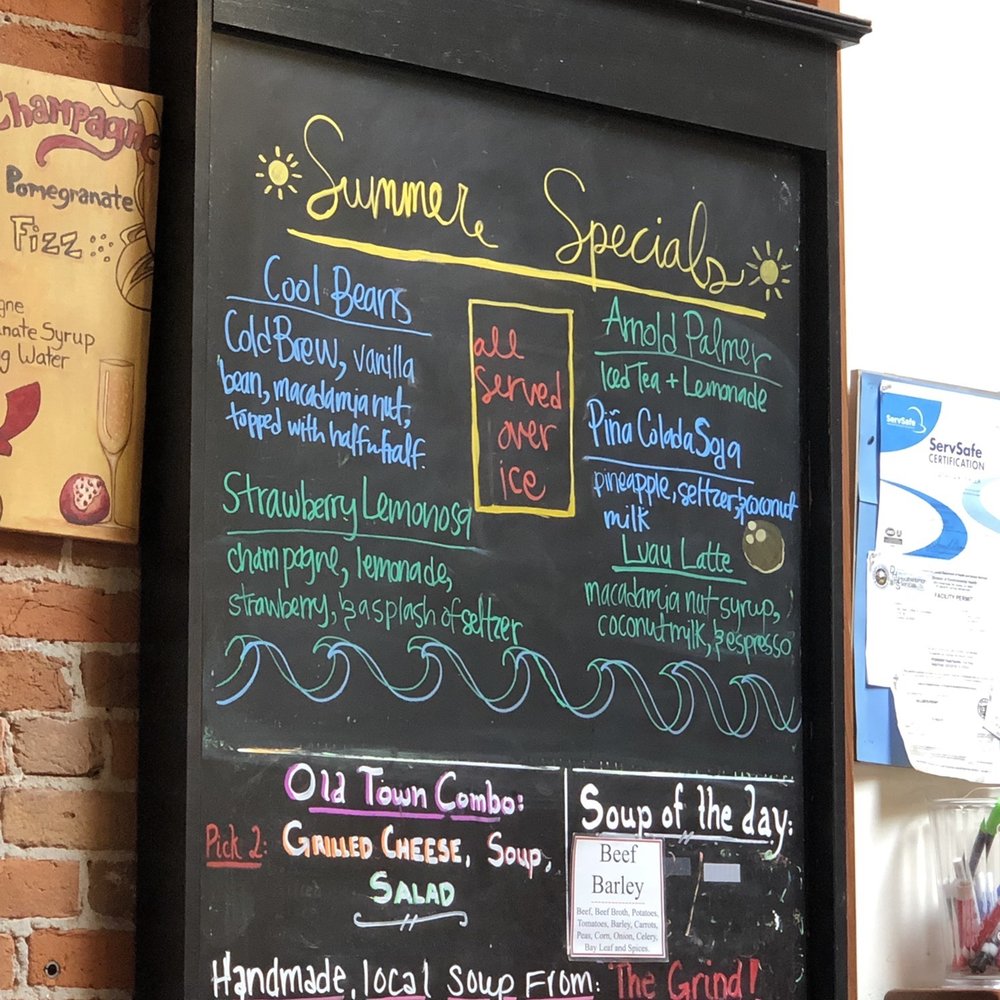 Champagne
Pomegranate
Fizz
Summer Specials
Cool Beans
Cold Brew, vanilla
bean, macadamia nut,
topped with half n half.
Strawberry Lemonosa
champagne, lemonade,
strawberry, & a splash of seltzer
all
served
over
ice
Arnold Palmer
Iced Tea + Lemonade
Piña Colada Soga
pineapple, seltzer, & coconut
milk
Luau Latte
macadamia nut syrup,
coconut milk, & espresso
Old Town Combo:
Pick 2: Grilled Cheese, Soup,
Salad
Soup of the day:
Beef
Barley
Beef, Beef Broth, Potatoes,
Tomatoes, Barley, Carrots,
Peas, Corn, Onion, Celery,
Bay Leaf and Spices.
Handmade, local Soup From: The Grind!
ServSafe
ServSafe
CERTIFICATION
FACILITY PERMIT